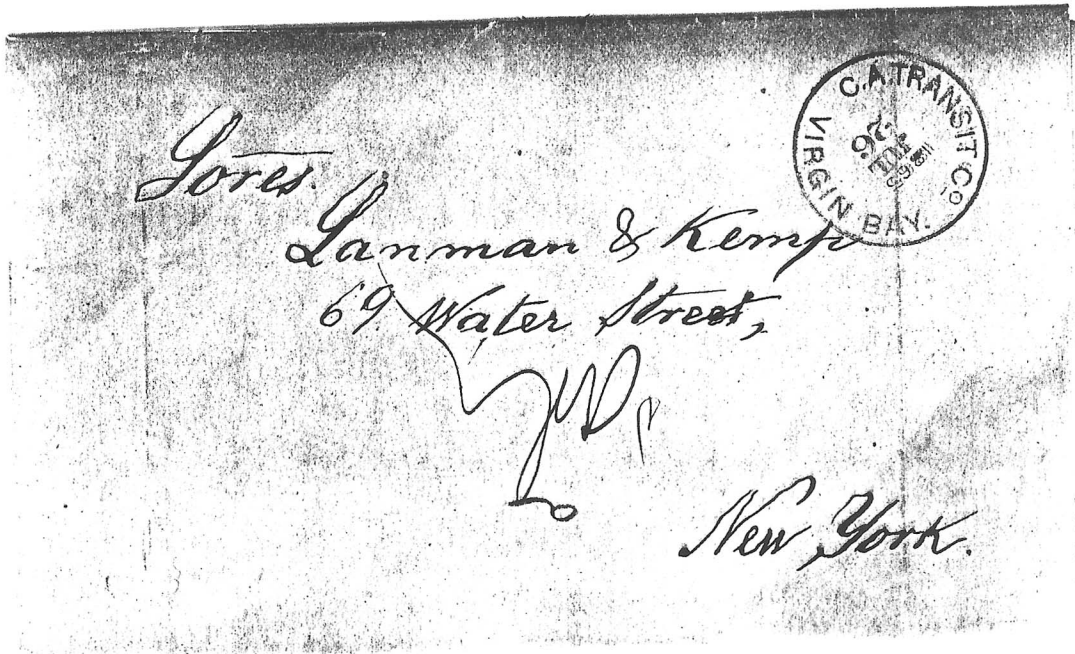 C.A. TRANSIT Co
26
VIRGIN BAY.
Sores.
Lanman & Kemp
69 Water Street,
New York.